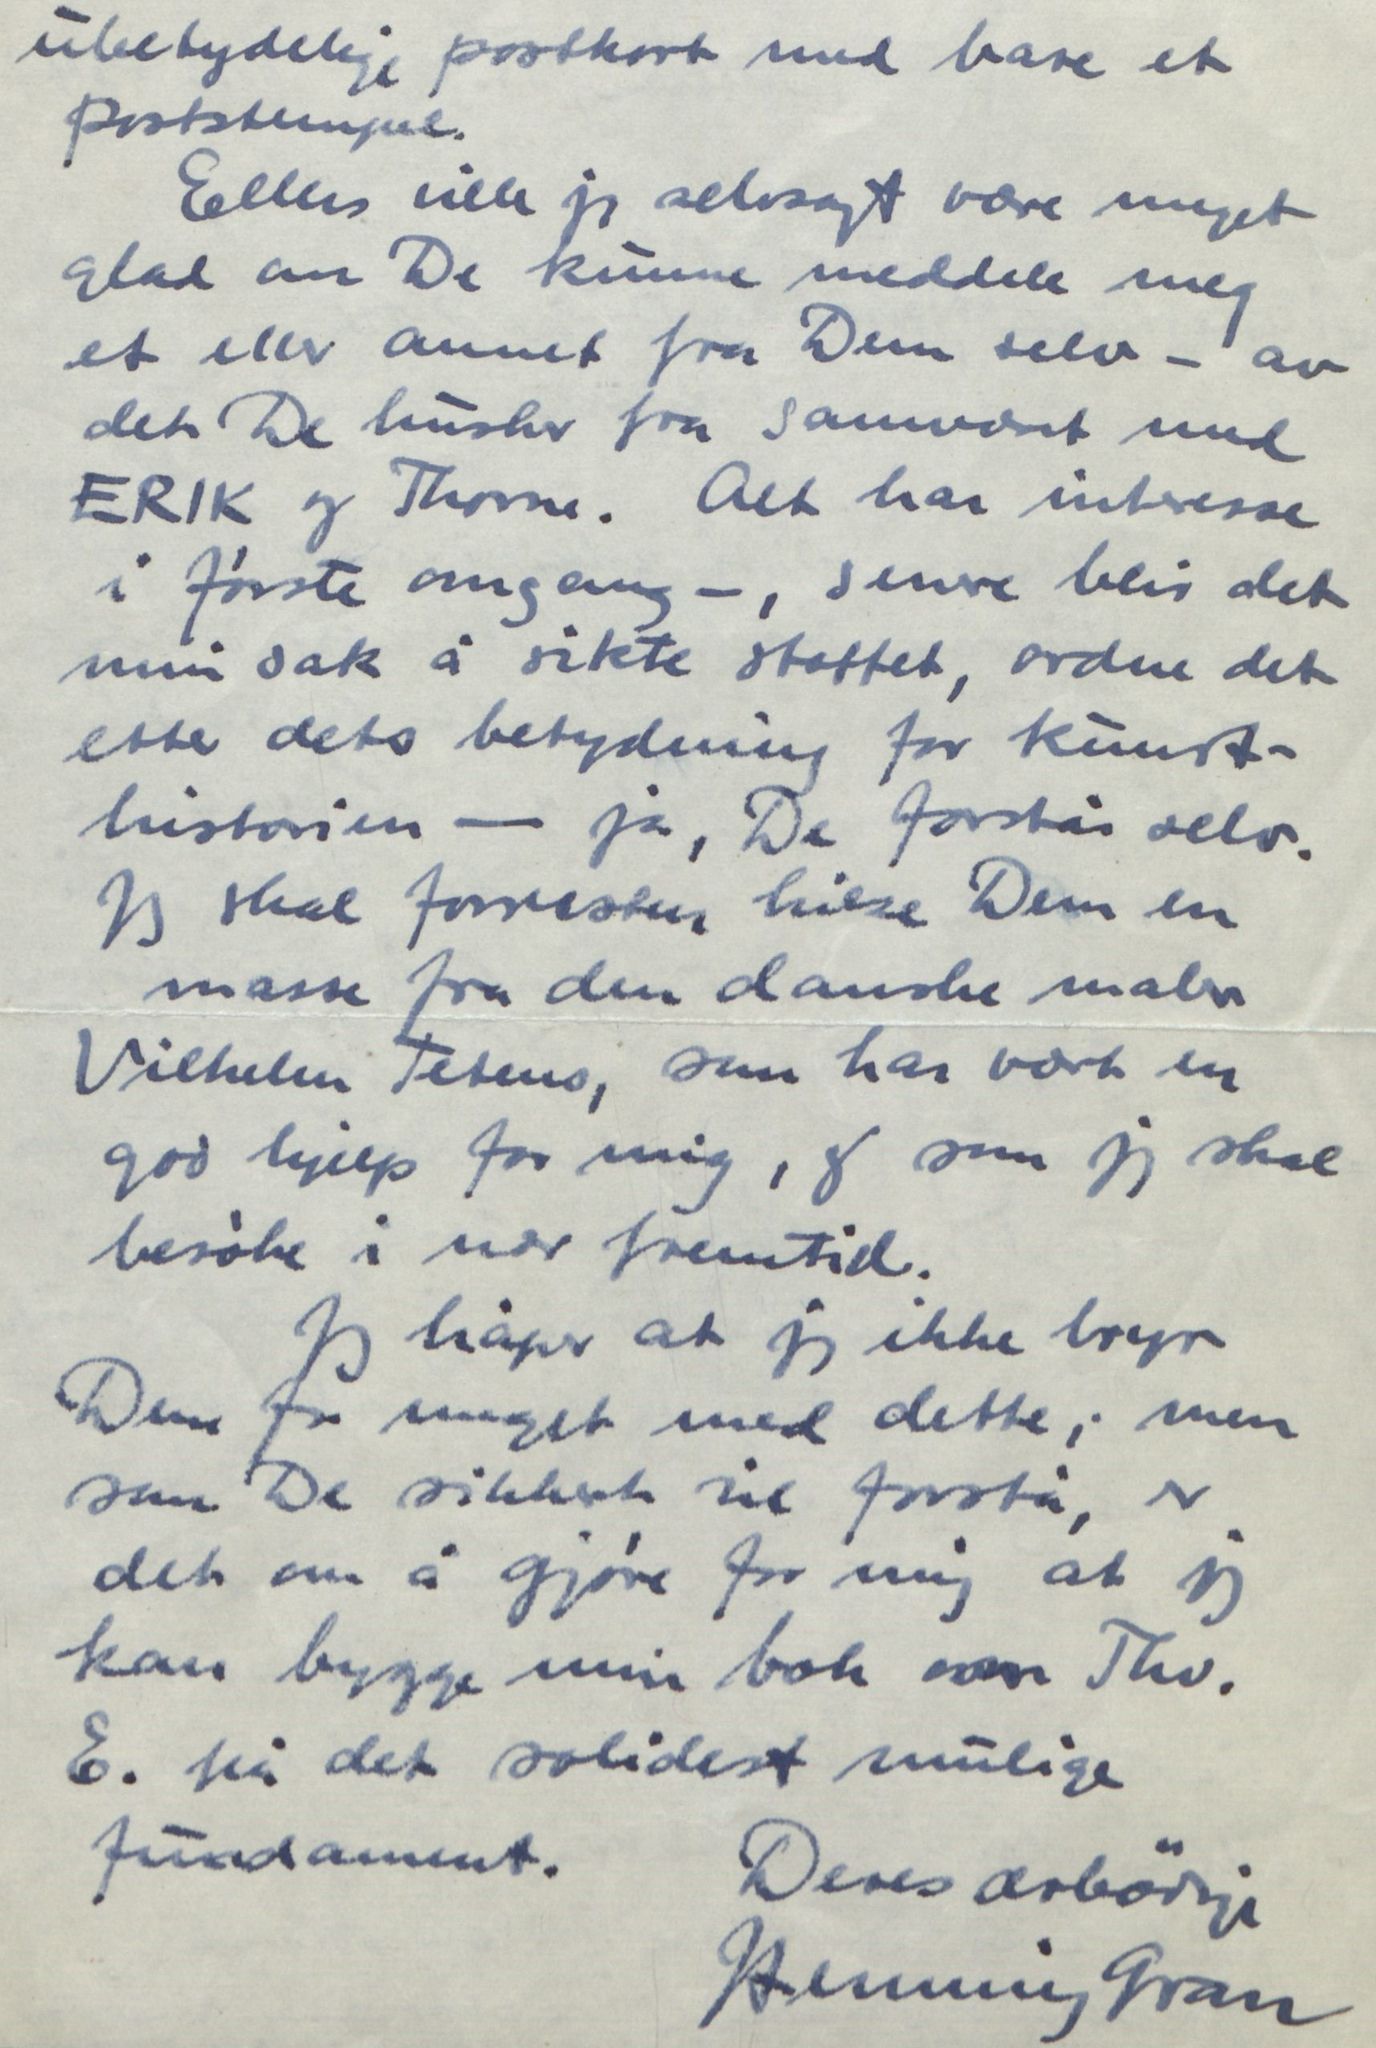 ubetydelige postkort med bare et
poststempel.
Ellers ville jeg selvsagt være meget
glad om De kunne meddele meg
et eller annet fra Dem selv – av
det De husker fra samværet med
ERIK og Thorne. Alt har interesse
i første omgang –, senere blir det
min sak å sikte stoffet, ordne det
etter dets betydning for kunst-
historien — ja, De forstår selv.
Jeg skal forresten hilse Dem en
masse fra den danske maler
Vilhelm Tetens, som har vært en
god hjelp for mig, og som jeg skal
besøke i nær fremtid.
Jeg håper at jeg ikke bryr
Dem for meget med dette; men
som De sikkert vil forstå, er
det om å gjøre for mig at jeg
kan bygge min bok om Thv.
E. på det solidest mulige
fundament.
Deres ærbödige
Henning Gran